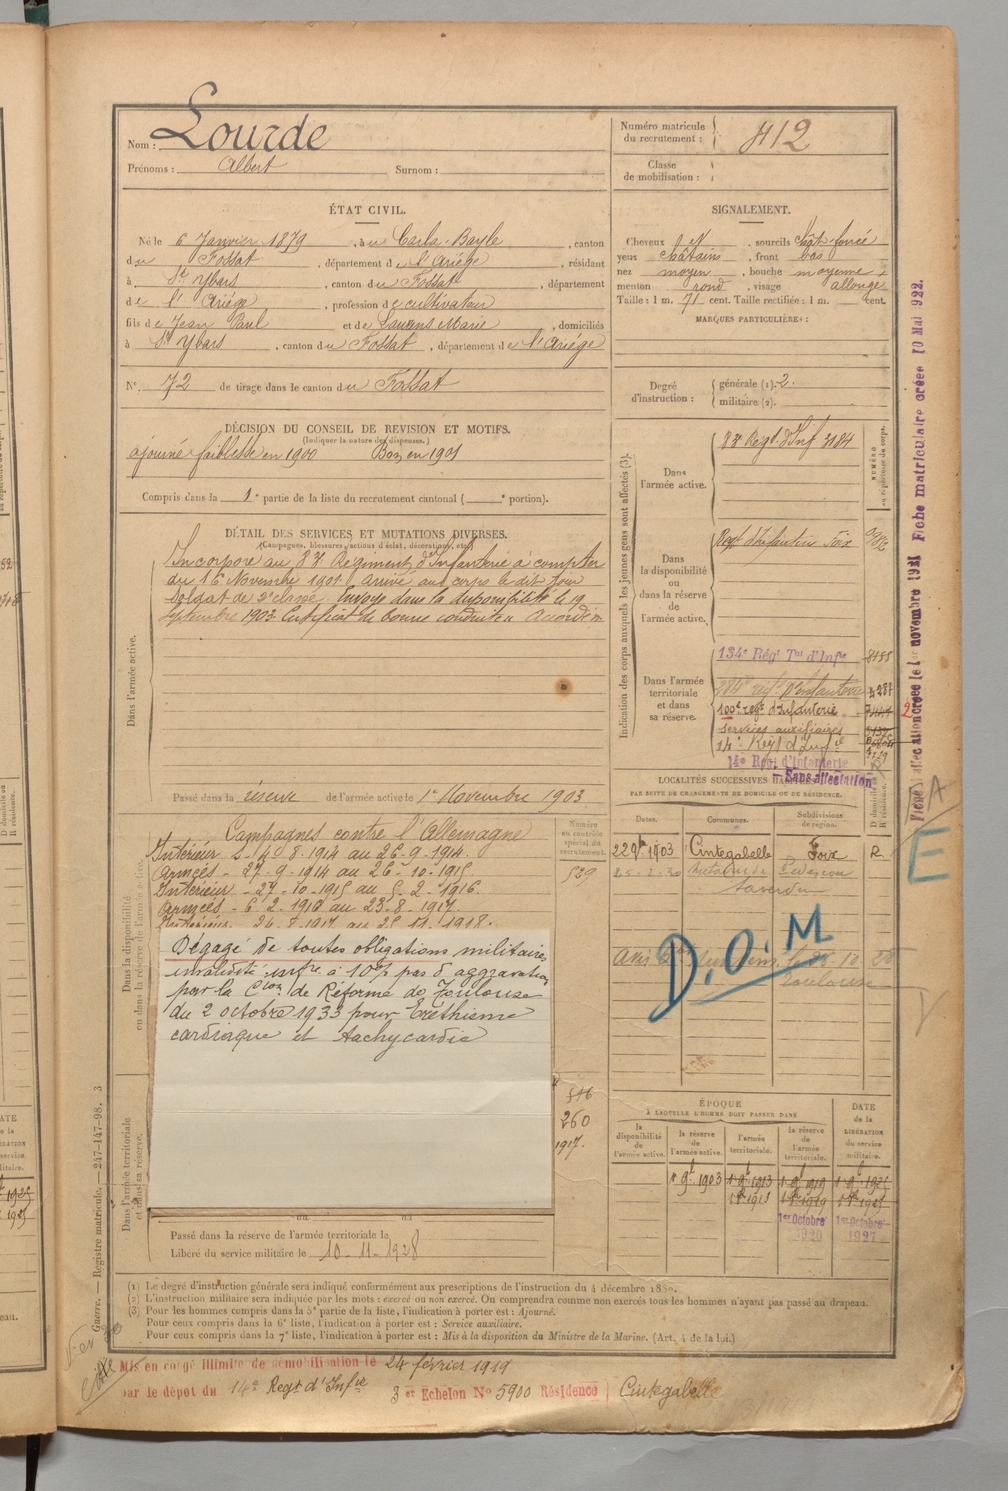 Nom : Lourde
Prénoms : Albert Surnom :
Numéro matricule du recrutement : 412
Classe de mobilisation :
ÉTAT CIVIL.
Né le 6 Janvier 1879, à u Carla-Bayle, canton
du Fossat, département de l'Ariège, résidant
à St Ybars, canton du Fossat, département
de l'Ariège, profession de cultivateur
fils de Jean Paul et de Laurens Marie, domiciliés
à St Ybars, canton du Fossat, département de l'Ariège
N° 72 de tirage dans le canton du Fossat
SIGNALEMENT.
Cheveux et , sourcils chât. foncé
yeux châtains , front bas
nez moyen , bouche moyenne
menton rond , visage allongé
Taille : 1 m. 71 cent. Taille rectifiée : 1 m. cent.
MARQUES PARTICULIÈRES :
Degré d'instruction : générale (1). 2.
militaire (2).
DÉCISION DU CONSEIL DE REVISION ET MOTIFS.
(Indiquer la nature des dispenses.)
ajourné faiblesse en 1900 Bon en 1901
Compris dans la 1e partie de la liste du recrutement cantonal ( e portion).
DÉTAIL DES SERVICES ET MUTATIONS DIVERSES.
(Campagnes, blessures, actions d'éclat, décorations, etc.)
Incorporé au 83e Régiment d'Infanterie à compter
du 16 Novembre 1901 arrivé au corps le dit jour
Soldat de 2e classe. Envoyé dans la disponibilité le 19
Septembre 1903 Certificat de bonne conduite "Accordé"
Dans l'armée active.
Passé dans la réserve de l'armée active le 1er Novembre 1903.
Indication des corps auxquels les jeunes gens sont affectés (3).
NUMÉRO au répertoire du corps.
Dans l'armée active.
83e Regt. d'Inf 3184
Dans la disponibilité ou dans la réserve de l'armée active.
Regt d'Infanterie Foix
Dans l'armée territoriale et dans sa réserve.
134e Régt Tal d'Infie
100e regt d'Infanterie
Services auxiliaires
14e Regt d'Infie
14e Regt d'Infanterie
Sans affectation
LOCALITÉS SUCCESSIVES HABITÉES
PAR SUITE DE CHANGEMENTS DE DOMICILE OU DE RÉSIDENCE.
Dates. Communes. Subdivisions de région. D domicile ou R résidence.
22 9bre 1903 Cintegabelle Foix R.
D.O.M
Dans la disponibilité ou dans la réserve de l'armée active.
Numéro au contrôle spécial du recrutement.
539
Campagnes contre l'Allemagne
Intérieur 2-8-1914 au 26-9-1914.
Armées - 27-9-1914 au 26-10-1915.
Intérieur - 27-10-1915 au 5-2-1916.
Armées - 6-2-1916 au 23-8-1917.
Intérieur - 24-8-1917 au 25-11-1918.
Dégagé de toutes obligations militaires
invalidité infre à 10% pas d'aggravation
par la Cion de Réforme de Toulouse
du 2 octobre 1933 pour Éréthisme
cardiaque et tachycardie
516
260
1917.
Dans l'armée territoriale et dans sa réserve.
ÉPOQUE
À LAQUELLE L'HOMME DOIT PASSER DANS
la disponibilité de l'armée active. la réserve de l'armée active. l'armée territoriale. la réserve de l'armée territoriale. DATE de la LIBÉRATION du service militaire.
1er 9bre 1903 1er 9bre 1913 1er 9bre 1919
1er Octobre 1920 1er Octobre 1927
Passé dans la réserve de l'armée territoriale le
Libéré du service militaire le 10-11-1928
(1) Le degré d'instruction générale sera indiqué conformément aux prescriptions de l'instruction du 4 décembre 1889.
(2) L'instruction militaire sera indiquée par les mots : exercé ou non exercé. On comprendra comme non exercés tous les hommes n'ayant pas passé au drapeau.
(3) Pour les hommes compris dans la 5e partie de la liste, l'indication à porter est : Ajourné.
Pour ceux compris dans la 6e liste, l'indication à porter est : Service auxiliaire.
Pour ceux compris dans la 7e liste, l'indication à porter est : Mis à la disposition du Ministre de la Marine. (Art. 4 de la loi.)
Mis en congé illimité de démobilisation le 24 février 1919
par le dépôt du 14e Regt d'Infie 3e Echelon N° 5900 Résidence Cintegabelle
Guerre. — Registre matricule. — 247-147-98. 3
Fiche matriculaire créée 10 Mai 1922.
E